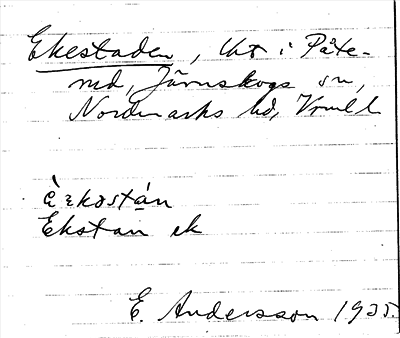 Ekestaden, Ut i Påte-
rud, Järnskogs sn,
Nordmarks hd, Vrml l
è ɛkəstán
Ekstan ek
E. Andersson 1935.